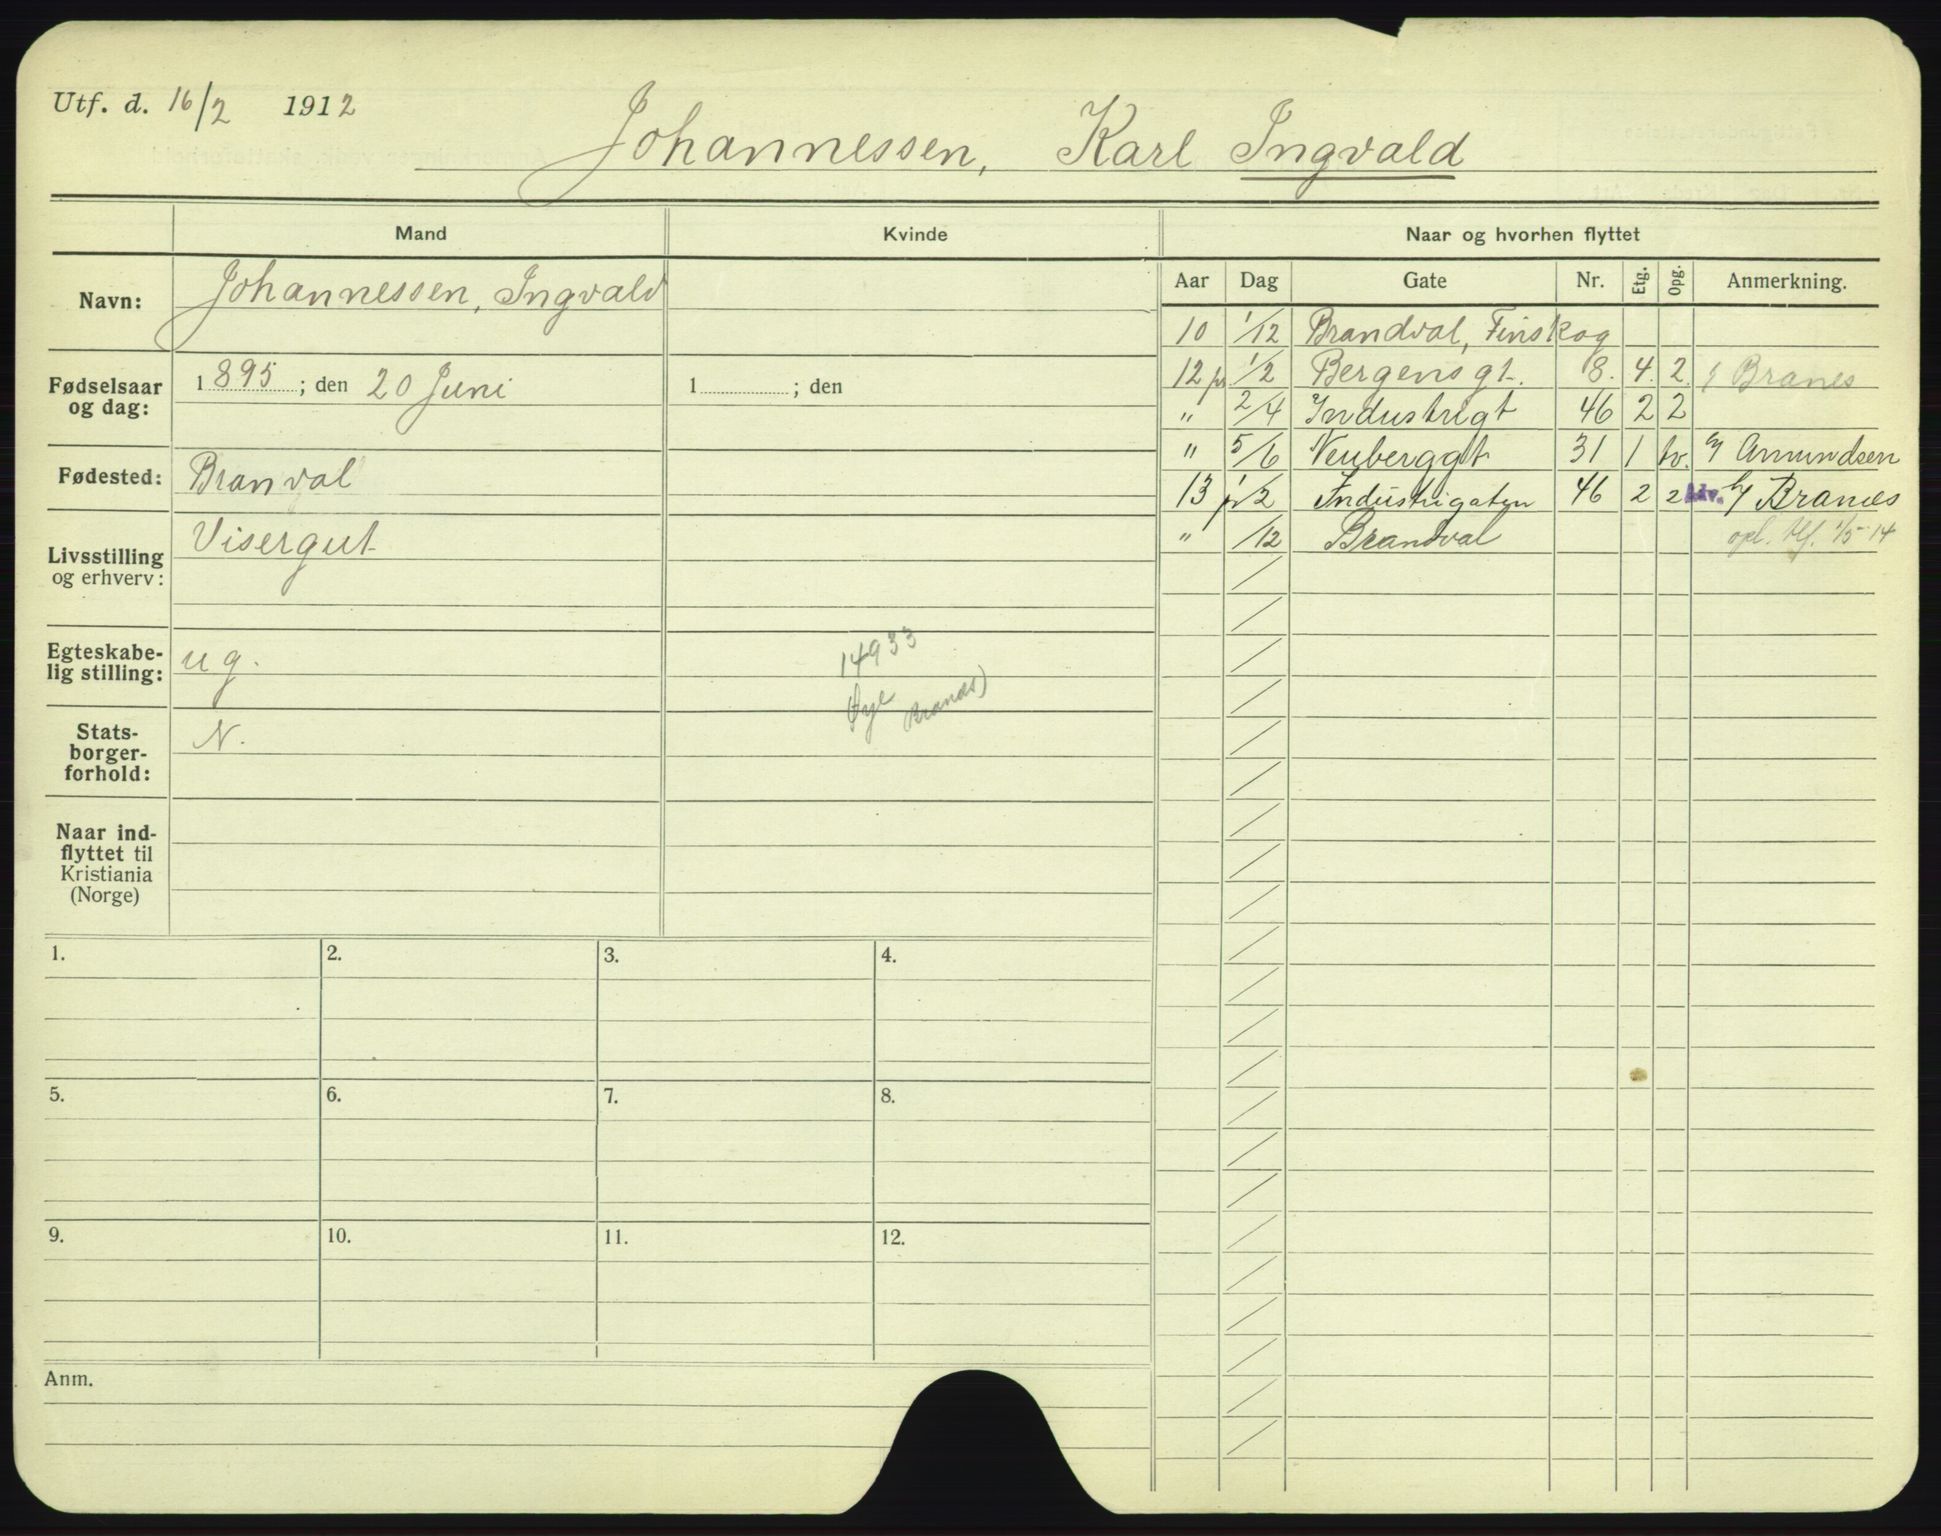 Utf. d. 16/2 1912
Johannessen, Karl Ingvald
Mand Kvinde Naar og hvorhen flyttet
Navn: Johannessen, Ingvald
Fødselsaar og dag: 1895; den 20 Juni 1 ; den
Fødested: Branval
Livsstilling og erhverv: Visergut
Egteskabe-
lig stilling: ug.
Stats-
borger-
forhold: N.
Naar ind-
flyttet til
Kristiania
(Norge)
14933
Øye
Branæs)
Aar Dag Gate Nr. Etg. Opg. Anmerkning.
10 1/12 Brandval, Finskog
12 pr 1/2 Bergensgt. 8. 4. 2. Branes
" 2/4 Industrigt 46 2 2
" 5/6 Neuberggt 31 1 tv. Amundsen
13 pr 1/2 Industrigaten 46 2 2 Adv. Branæs
" /12 Brandval opl. 1/5-14
1. 2. 3. 4.
5. 6. 7. 8.
9. 10. 11. 12.
Anm.